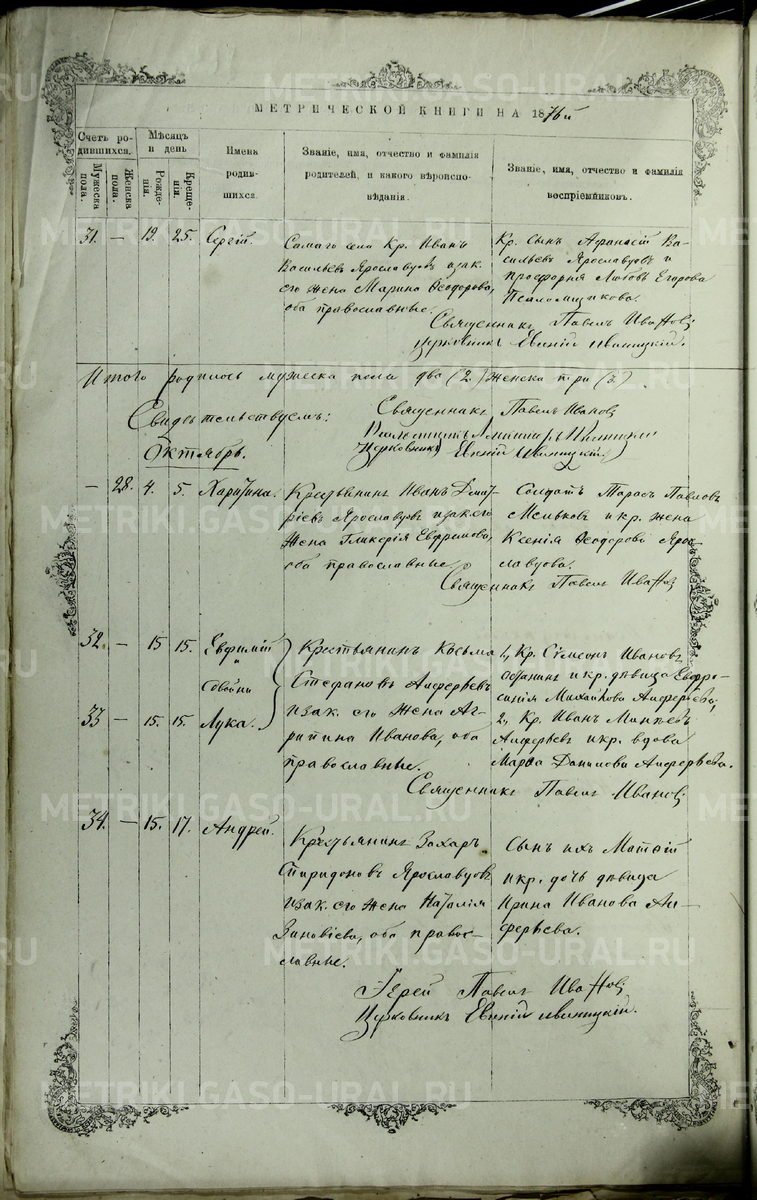 МЕТРИЧЕСКОЙ КНИГИ НА 1876й
Счетъ ро-
дившихся.
Мужеска
пола.
Женска
пола.
Мѣсяцъ
и день
Рожде-
нія.
Креще-
нія.
Имена
родив-
шихся.
Званіе, имя, отчество и фамилія
родителей, и какого вѣроиспо-
вѣданія.
Званіе, имя, отчество и фамилія
воспріемниковъ.
31. — 19. 25. Сергій.
Самаго села Кр. Иванъ
Васильевъ Ярославцовъ изак.
его жена Марина Ѳеодорова,
оба православные.
Кр. сынъ Афанасій Ва-
сильевъ Ярославцовъ и
просфорня Любовь Егорова
Псаломщикова.
Священникъ Павелъ Ивановъ
Церковникъ Евгеній
Итого родилось мужеска пола два (2.) женска три (3.)
Свидѣтельствуемъ:
Священникъ Павелъ Ивановъ
Церковникъ Евгеній
Октябрь.
— 28. 4. 5. Харитина.
Крестьянинъ Иванъ Дмит-
ріевъ Ярославцовъ изак его
жена Гликерія Евфремова,
оба православные.
Солдатъ Тарасъ Павловъ
и кр. жена
Ксенія Ѳеодорова Яро-
славцова.
Священникъ Павелъ Ивановъ
32. — 15 15. Евфимій
"
33 — 15. 15. Лука.
Крестьянинъ Косьма
Стефановъ Алферьевъ
изак. его жена Аг-
рипина Иванова, оба
православные.
1, Кр. Сѵмеонъ Ивановъ
и кр. дѣвица Евфро-
синія Михайлова Алферьева;
2, Кр. Иванъ
Алферьевъ и кр. вдова
Марѳа Данилова Алферьева.
Священникъ Павелъ Ивановъ
34. — 15. 17. Андрей.
Крестьянинъ Захаръ
Спиридоновъ Ярославцовъ
изак. его жена Наталія
Зиновіева, оба право-
славные.
Сынъ ихъ Матѳій
и кр. дочь дѣвица
Ирина Иванова Ал-
ферьева.
Іерей Павелъ Ивановъ
Церковникъ Евгеній
METRIKI.GASO-URAL.RU